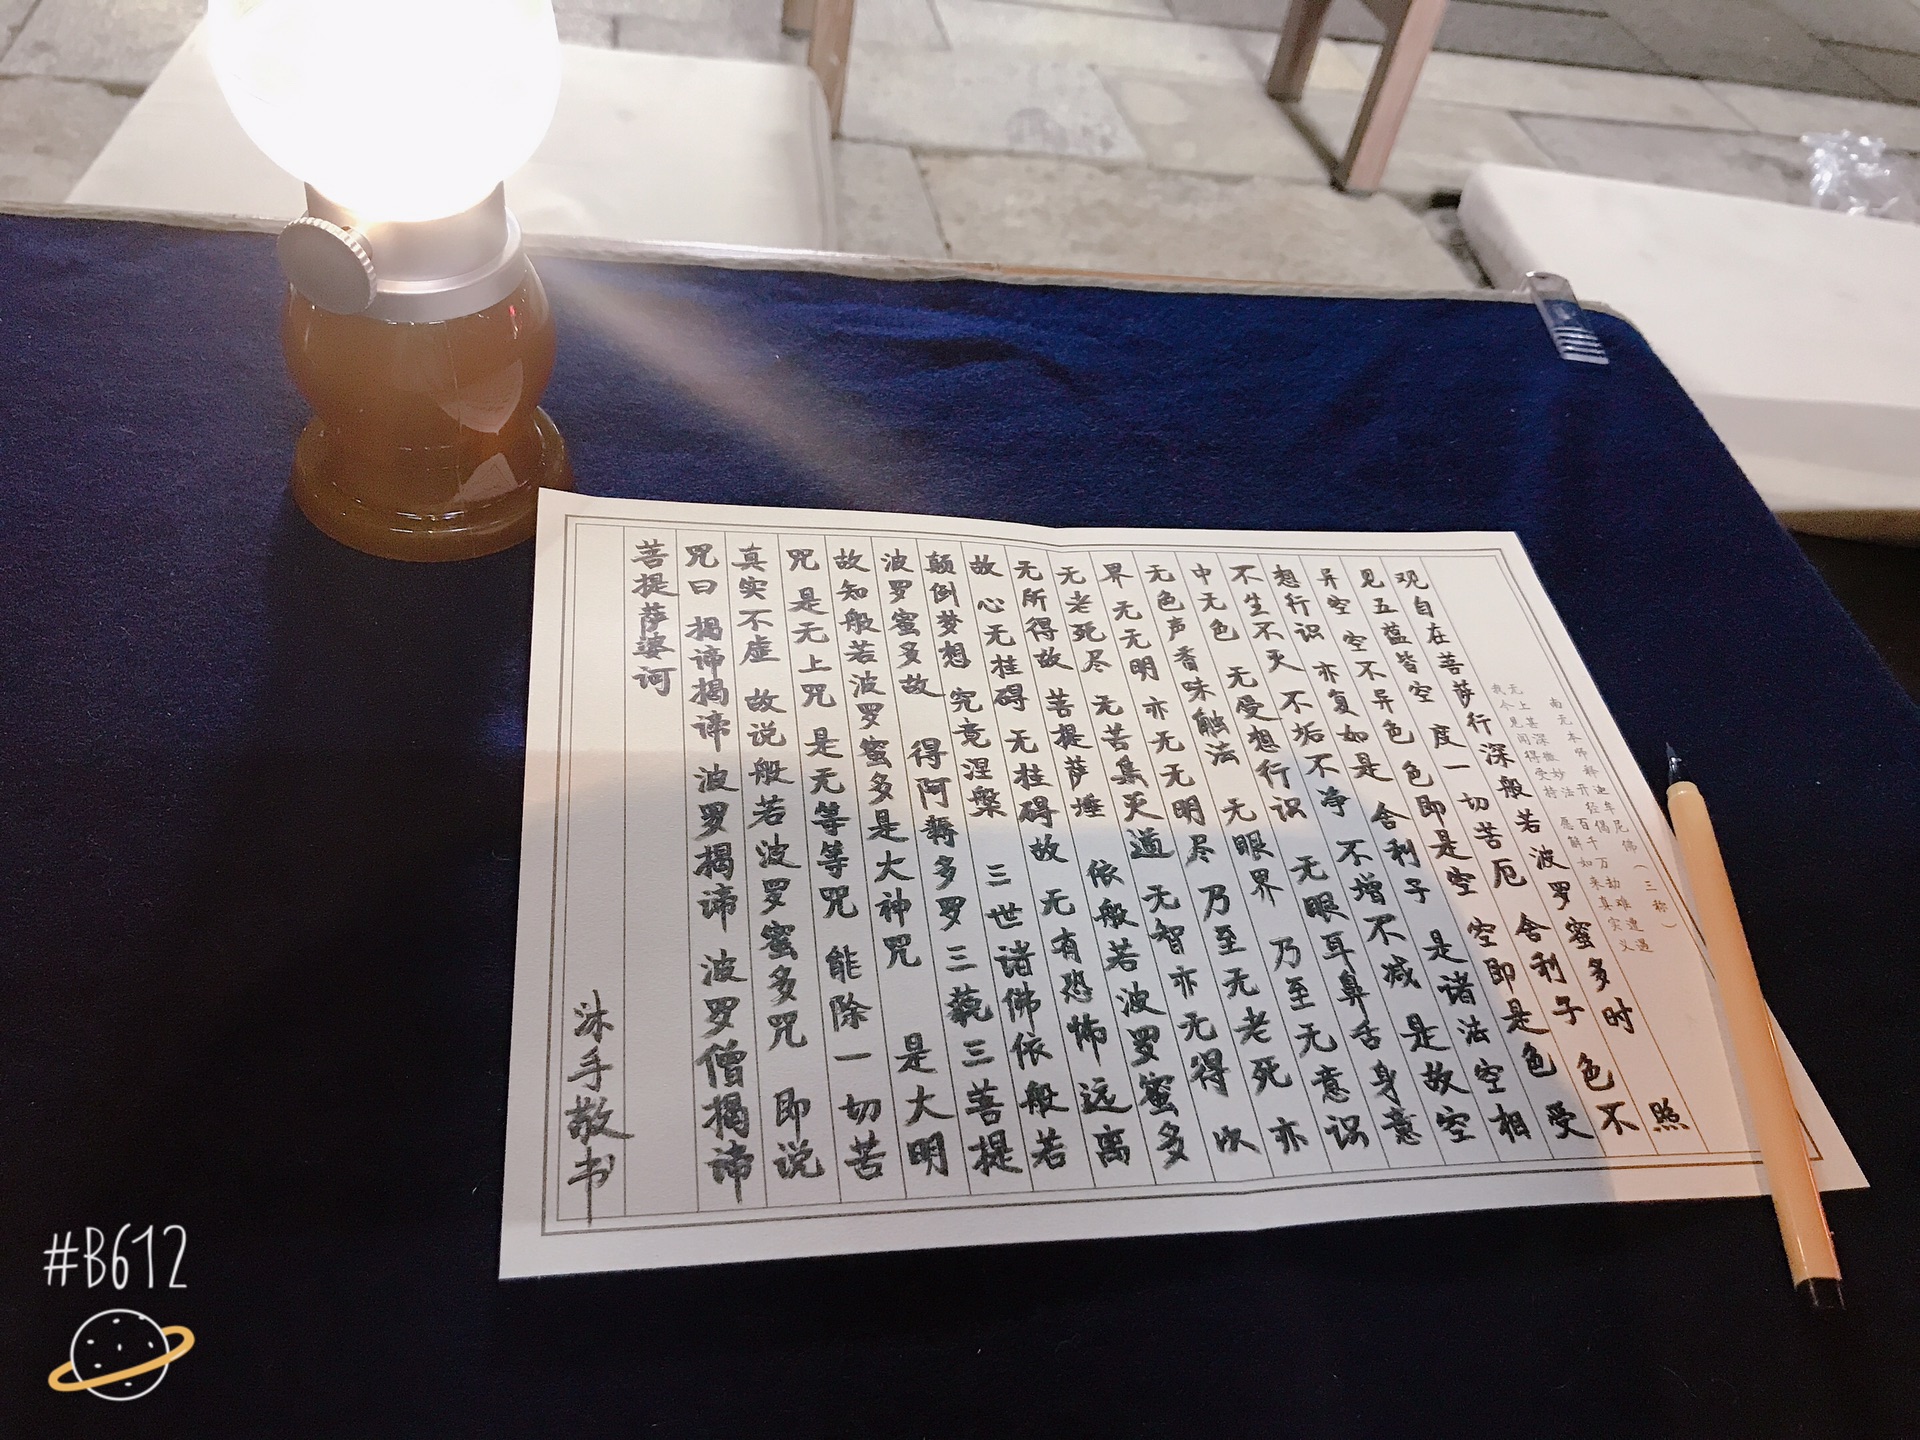 南无本师释迦牟尼佛（三称）
开经偈
无上甚深微妙法 百千万劫难遭遇
我今见闻得受持 愿解如来真实义
观自在菩萨行深般若波罗蜜多时 照
见五蕴皆空 度一切苦厄 舍利子 色不
异空 空不异色 色即是空 空即是色 受
想行识 亦复如是 舍利子 是诸法空相
不生不灭 不垢不净 不增不减 是故空
中无色 无受想行识 无眼耳鼻舌身意
无色声香味触法 无眼界 乃至无意识
界 无无明 亦无无明尽 乃至无老死 亦
无老死尽 无苦集灭道 无智亦无得 以
无所得故 菩提萨埵 依般若波罗蜜多
故 心无挂碍 无挂碍故 无有恐怖 远离
颠倒梦想 究竟涅槃 三世诸佛 依般若
波罗蜜多故 得阿耨多罗三藐三菩提
故知般若波罗蜜多 是大神咒 是大明
咒 是无上咒 是无等等咒 能除一切苦
真实不虚 故说般若波罗蜜多咒 即说
咒曰 揭谛揭谛 波罗揭谛 波罗僧揭谛
菩提萨婆诃
沐手敬书
#B612